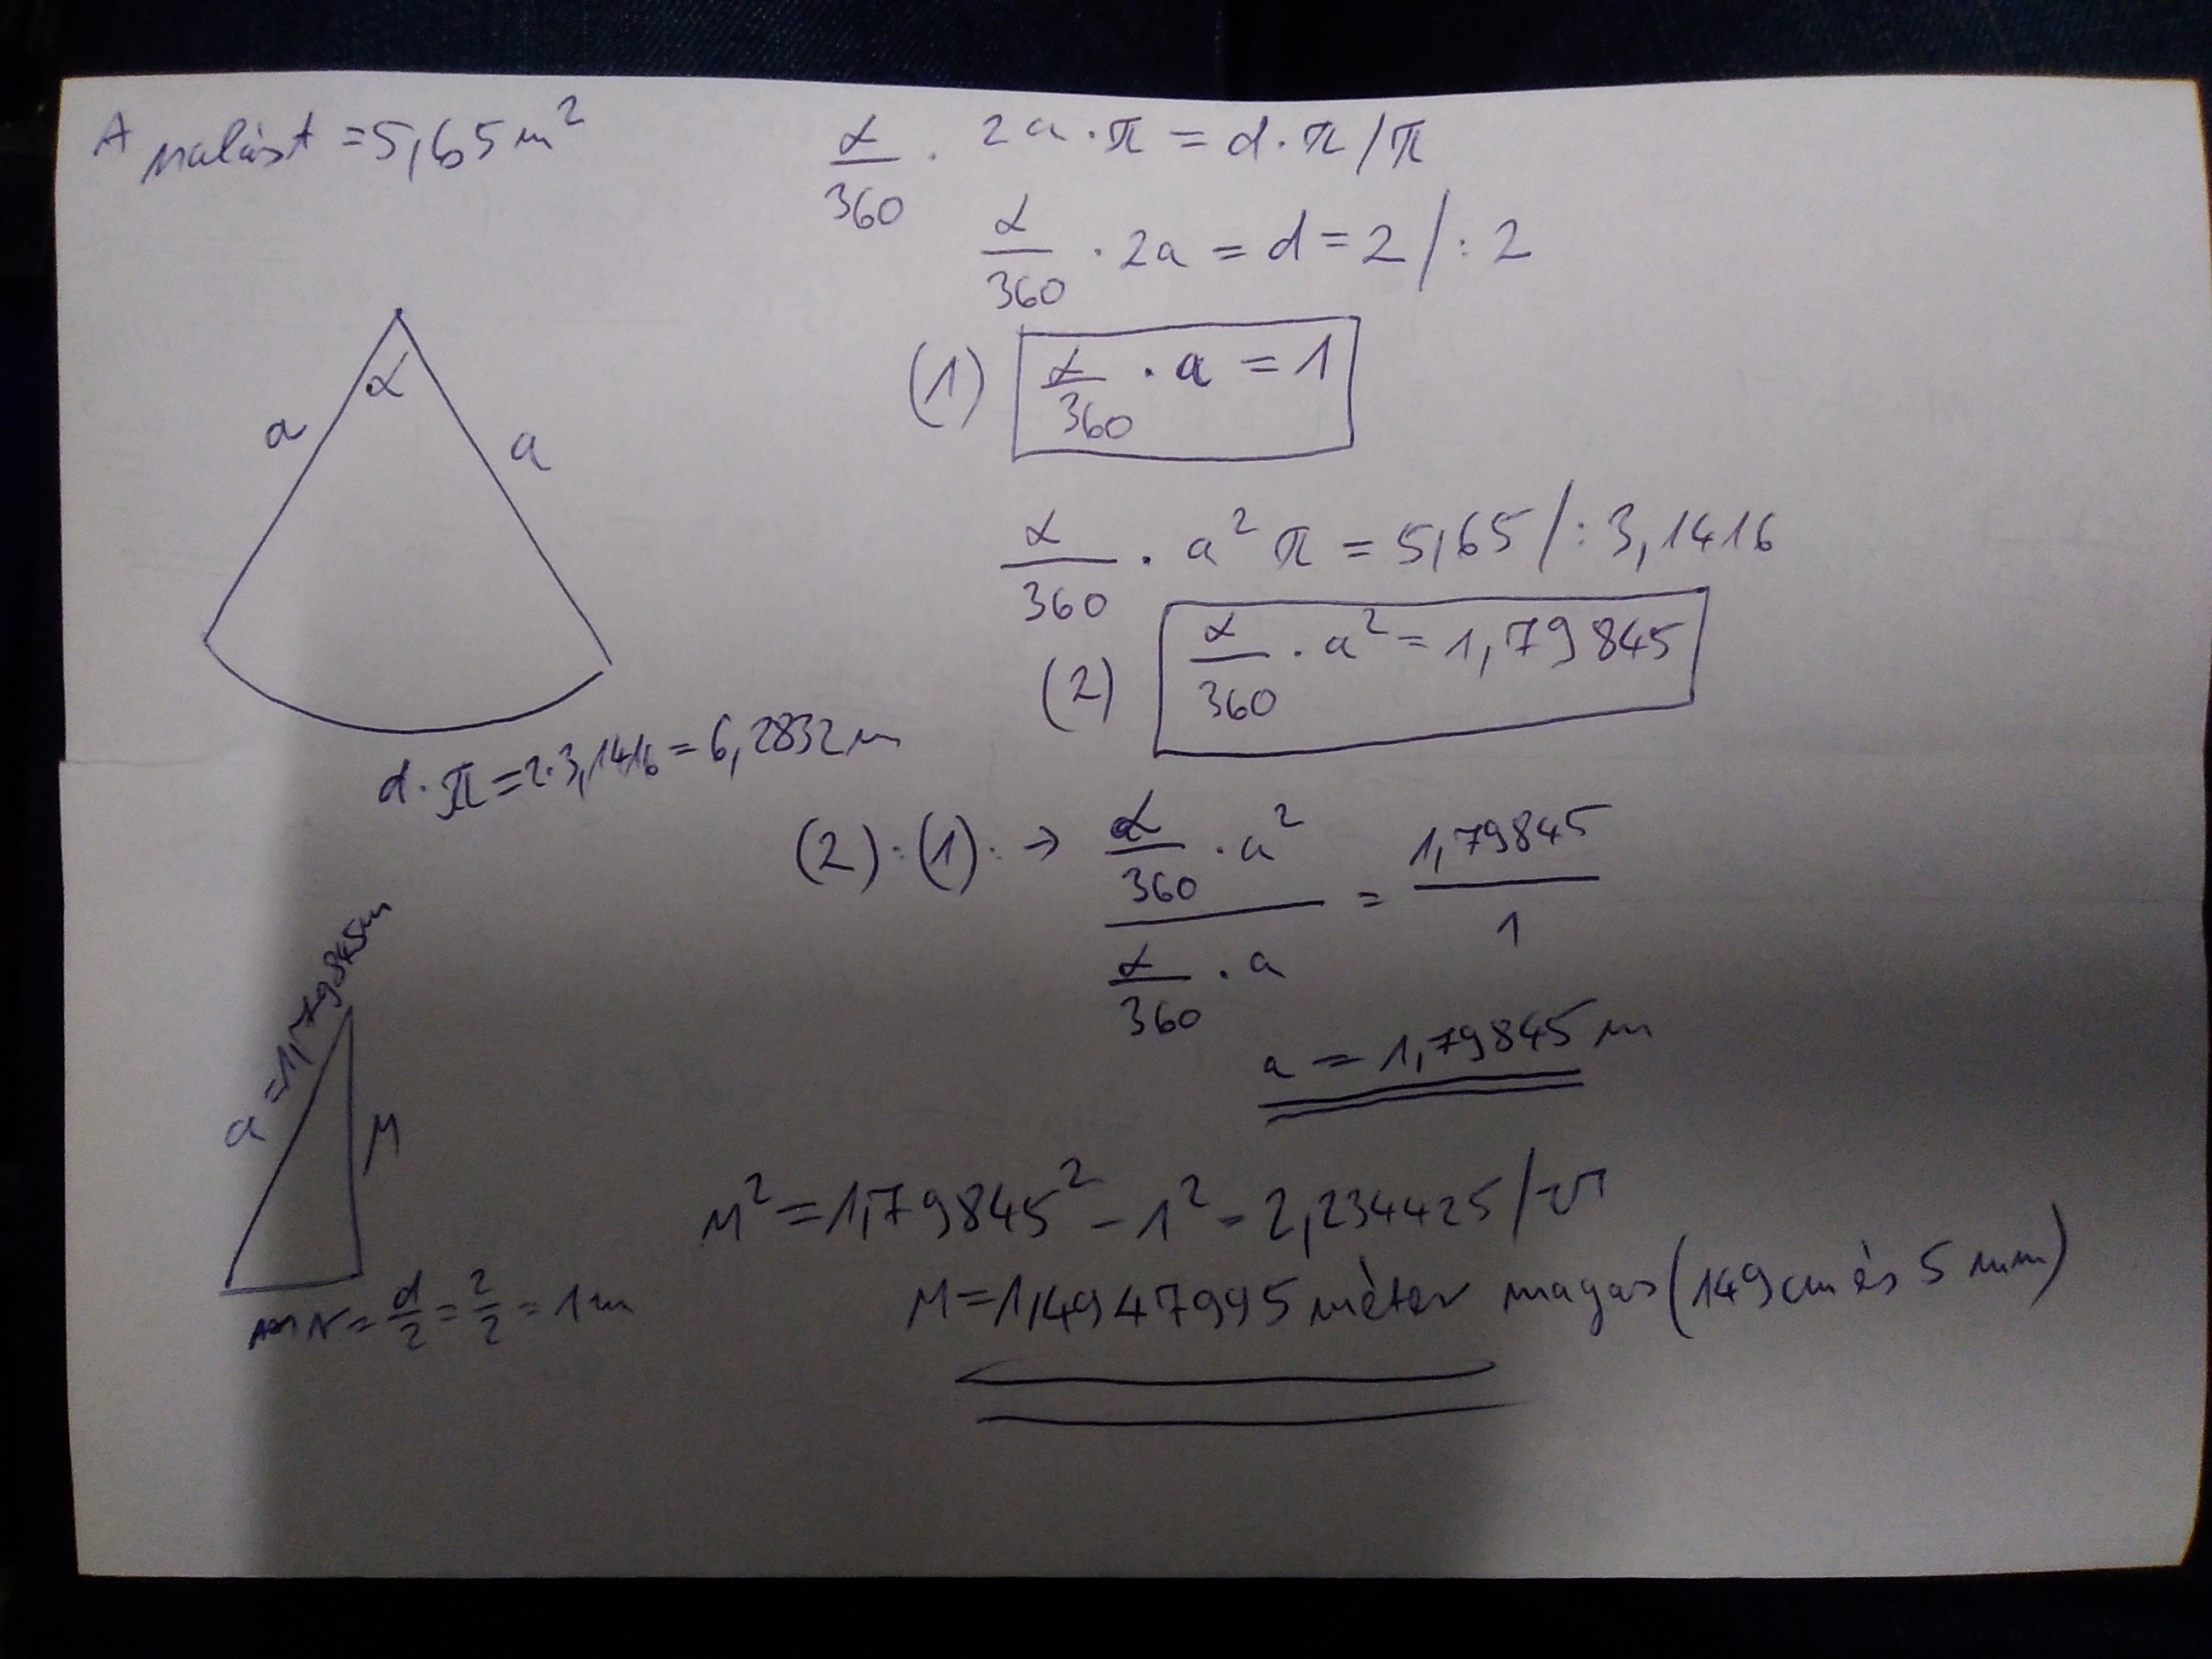 A palást = 5,65 m²
α/360 · 2a·π = d·π /π
α/360 · 2a = d = 2 /:2
(1) α/360 · a = 1
α
a
a
α/360 · a²π = 5,65 /: 3,1416
(2) α/360 · a² = 1,79845
d·π = 2·3,1416 = 6,2832 m
(2):(1): → (α/360 · a²)/(α/360 · a) = 1,79845/1
a = 1,79845 m
a = 1,79845m
M
r = d/2 = 2/2 = 1m
M² = 1,79845² - 1² = 2,234425 /√
M = 1,4947995 méter magas (149 cm és 5 mm)